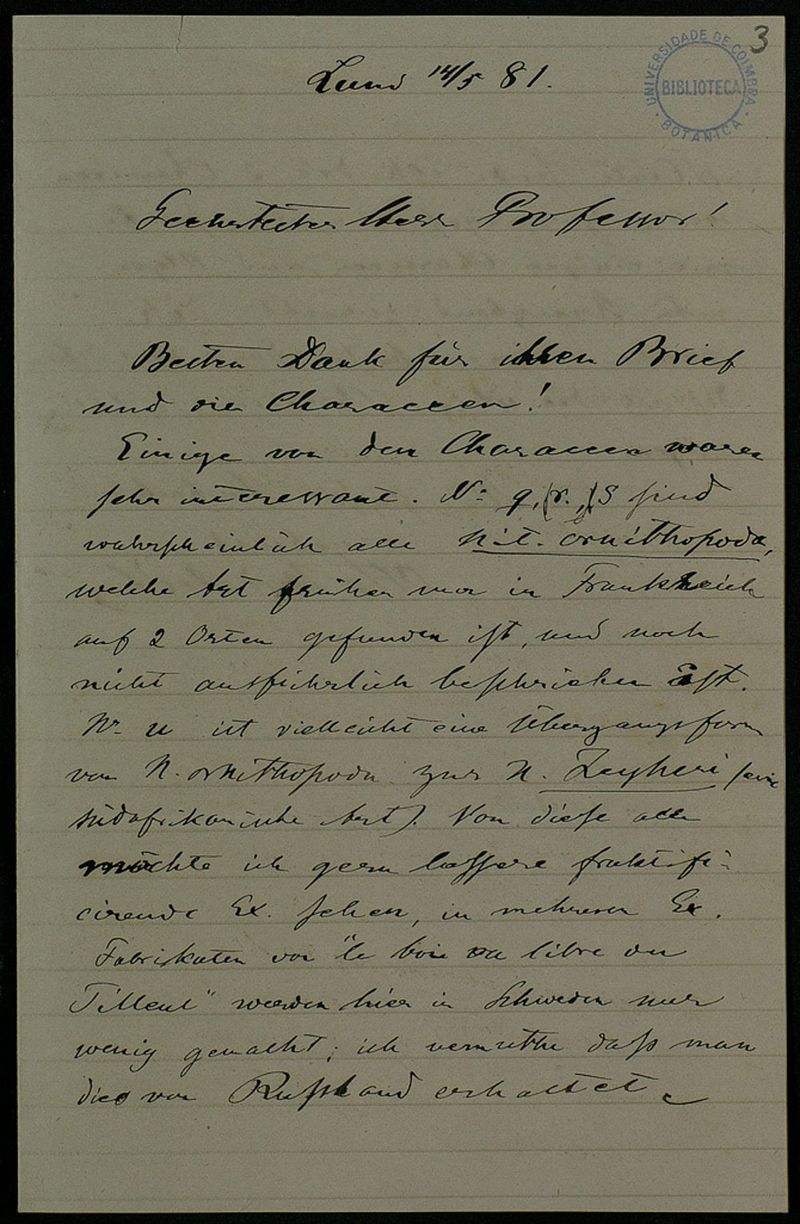 3
UNIVERSIDADE DE COIMBRA
BIBLIOTECA
BOTANICA
Lund 14/5 81.
Geehrtester Herr Professor!
Besten Dank für ihren Brief
und die Characeen!
Einige von den Characeen waren
sehr interessant. No q, (r.,) S sind
wahrscheinlich alle Nit. ornithopoda,
welche Art früher nur in Frankreich
auf 2 Orten gefunden ist, und noch
nicht ausführlich beschrieben ist.
Nr u ist vielleicht eine Übergangsform
von N. ornithopoda zur N. Zeyheri (eine
südafrikanische Art). Von diese alle
möchte ich gern bessere fruktifi-
cirende Ex. sehen, in mehreren Ex.
Fabrikaten von "le bois ou libre du
Tilleul" werden hier in Schweden nur
wenig gemacht; ich vermuthe dass man
dies von Russland erhaltet